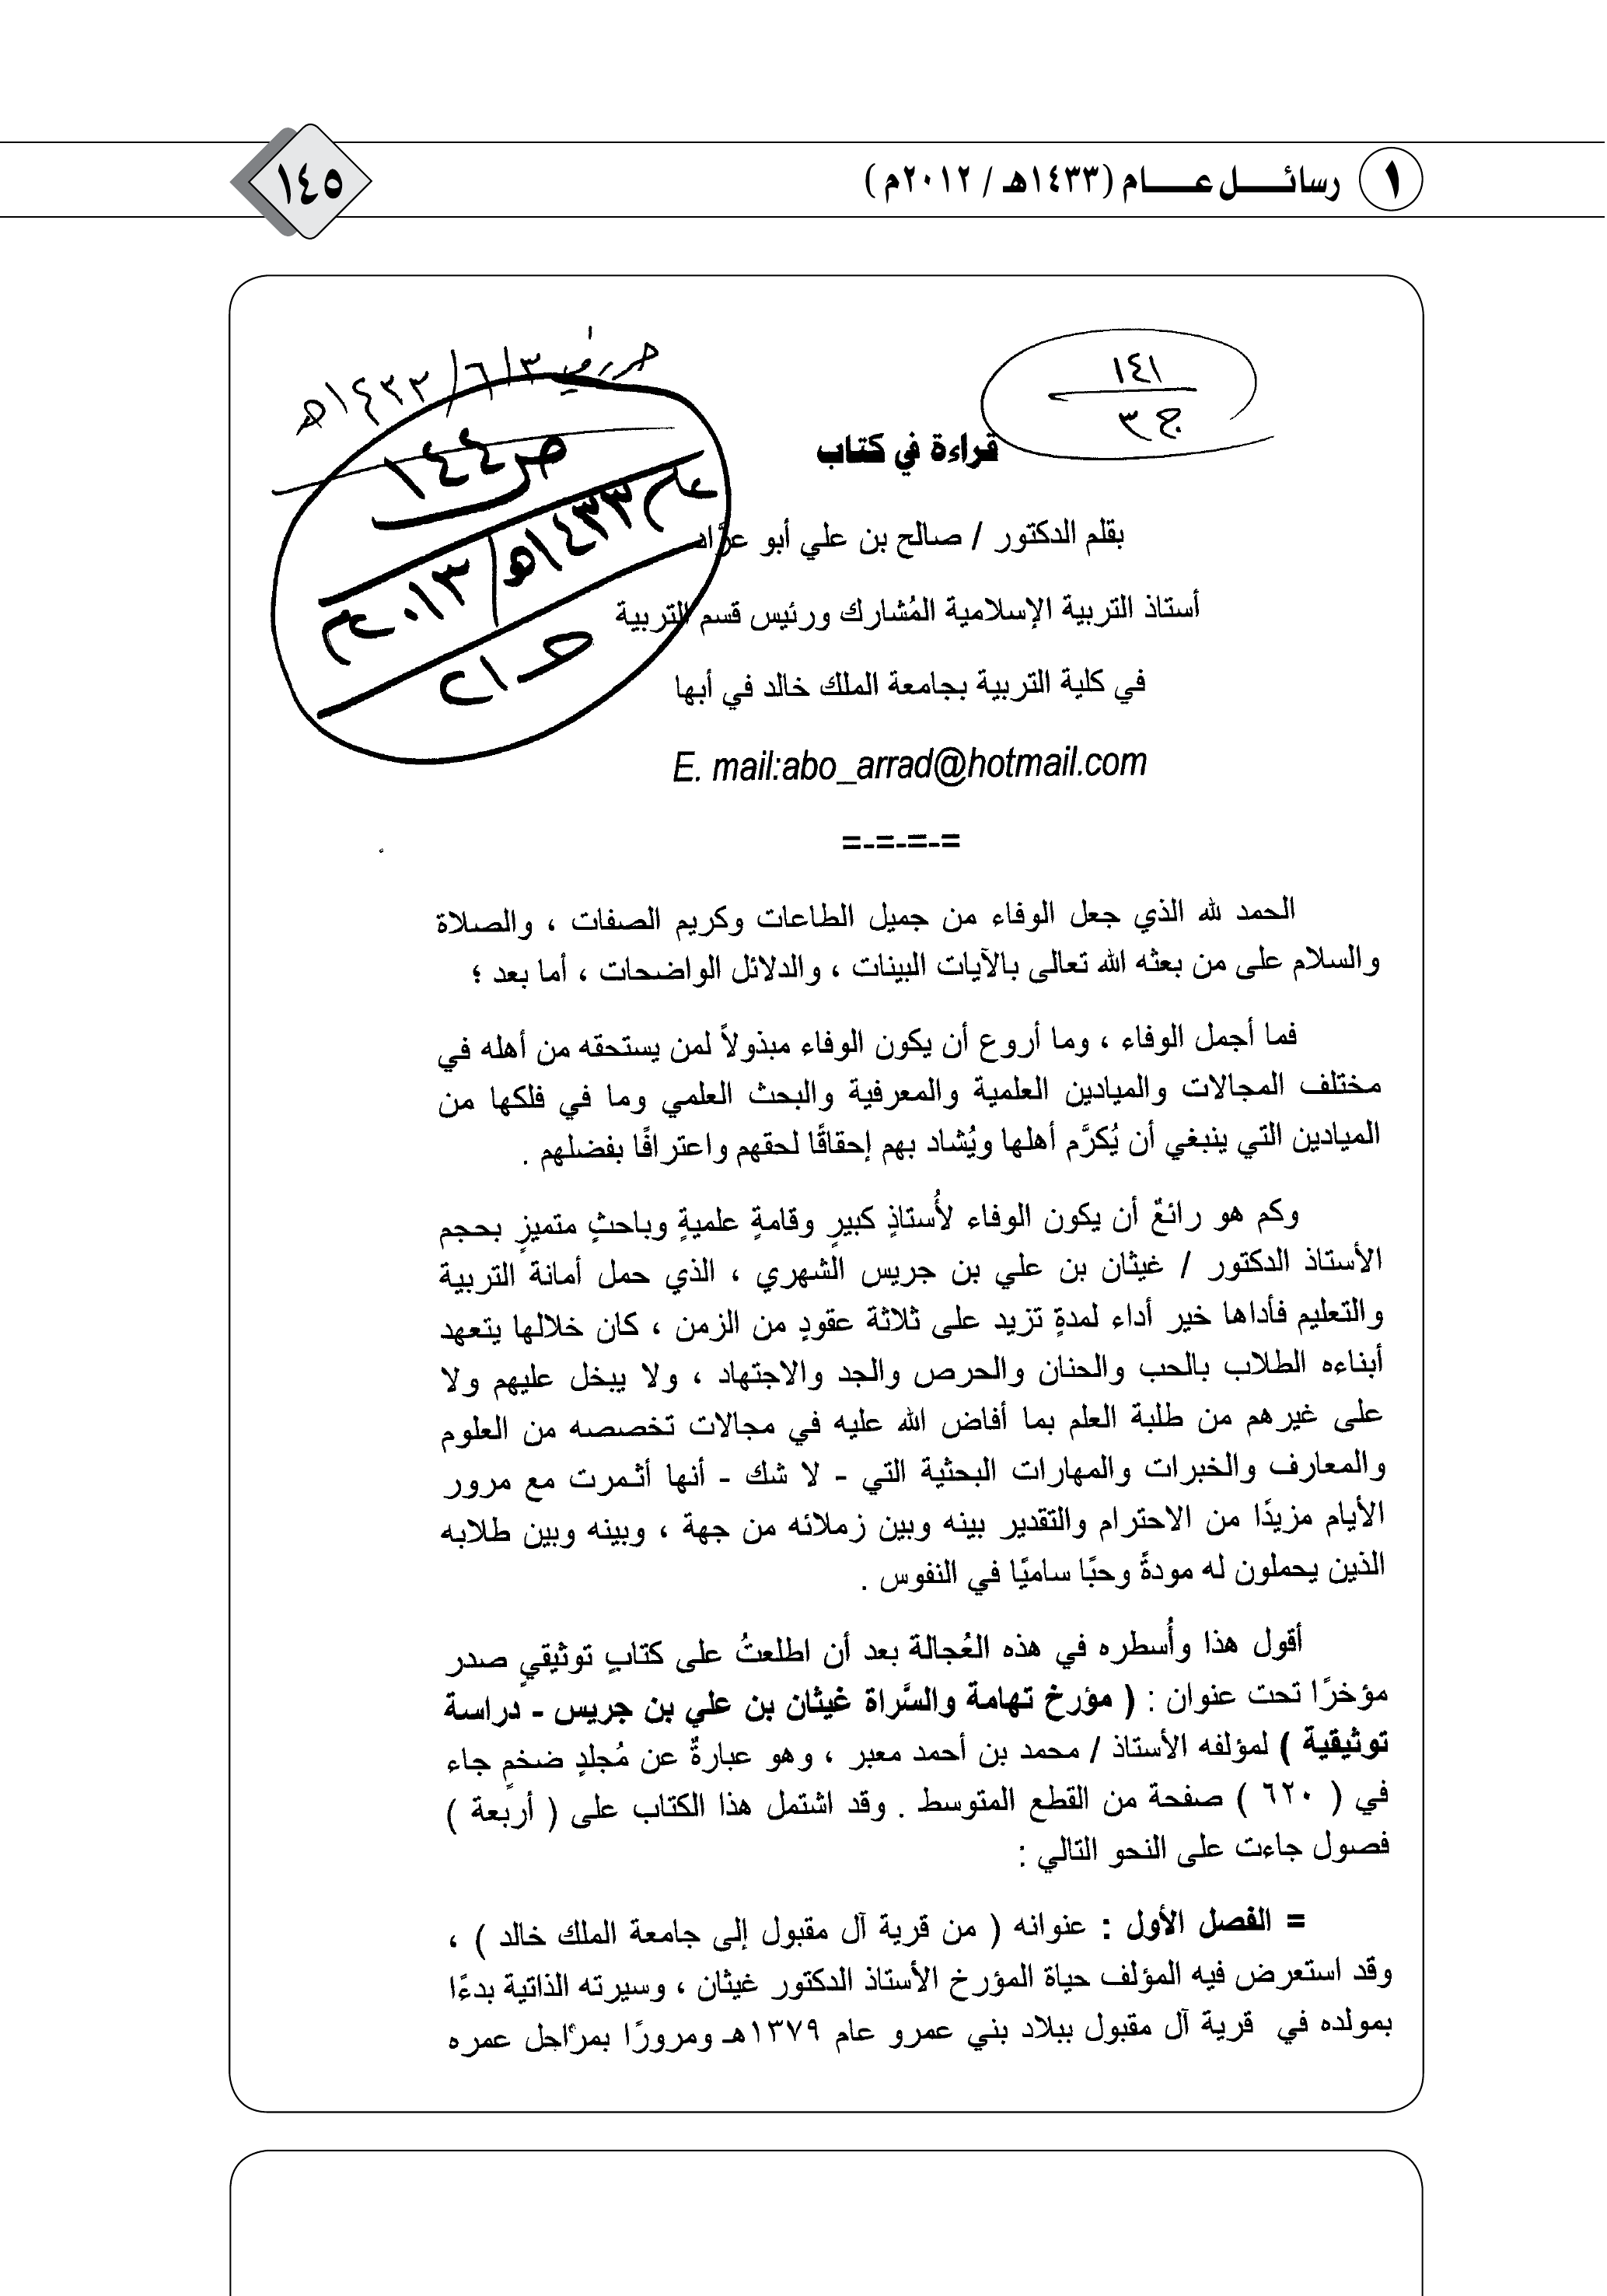 ١ رسائــــل عــــام (١٤٣٣هـ / ٢٠١٢م )
١٤٥
١٤١
ج ٣
٣ / ٦ / ١٤٣٣هـ
ص ١٤٤
عام ١٤٣٣هـ / ٢٠١٣م
قراءة في كتاب
بقلم الدكتور / صالح بن علي أبو عرَّاد
أستاذ التربية الإسلامية المُشارك ورئيس قسم التربية
في كلية التربية بجامعة الملك خالد في أبها
E. mail:abo_arrad@hotmail.com
=-=-=-=
الحمد لله الذي جعل الوفاء من جميل الطاعات وكريم الصفات ، والصلاة
والسلام على من بعثه الله تعالى بالآيات البينات ، والدلائل الواضحات ، أما بعد ؛
فما أجمل الوفاء ، وما أروع أن يكون الوفاء مبذولاً لمن يستحقه من أهله في
مختلف المجالات والميادين العلمية والمعرفية والبحث العلمي وما في فلكها من
الميادين التي ينبغي أن يُكرَّم أهلها ويُشاد بهم إحقاقًا لحقهم واعترافًا بفضلهم .
وكم هو رائعٌ أن يكون الوفاء لأُستاذٍ كبيرٍ وقامةٍ علميةٍ وباحثٍ متميزٍ بحجم
الأستاذ الدكتور / غيثان بن علي بن جريس الشهري ، الذي حمل أمانة التربية
والتعليم فأداها خير أداء لمدةٍ تزيد على ثلاثة عقودٍ من الزمن ، كان خلالها يتعهد
أبناءه الطلاب بالحب والحنان والحرص والجد والاجتهاد ، ولا يبخل عليهم ولا
على غيرهم من طلبة العلم بما أفاض الله عليه في مجالات تخصصه من العلوم
والمعارف والخبرات والمهارات البحثية التي - لا شك - أنها أثمرت مع مرور
الأيام مزيدًا من الاحترام والتقدير بينه وبين زملائه من جهة ، وبينه وبين طلابه
الذين يحملون له مودةً وحبًا ساميًا في النفوس .
أقول هذا وأُسطره في هذه العُجالة بعد أن اطلعتُ على كتابٍ توثيقيٍ صدر
مؤخرًا تحت عنوان : ( مؤرخ تهامة والسَّراة غيثان بن علي بن جريس - دراسة
توثيقية ) لمؤلفه الأستاذ / محمد بن أحمد معبر ، وهو عبارةٌ عن مُجلدٍ ضخمٍ جاء
في ( ٦٢٠ ) صفحة من القطع المتوسط . وقد اشتمل هذا الكتاب على ( أربعة )
فصول جاءت على النحو التالي :
= الفصل الأول : عنوانه ( من قرية آل مقبول إلى جامعة الملك خالد ) ،
وقد استعرض فيه المؤلف حياة المؤرخ الأستاذ الدكتور غيثان ، وسيرته الذاتية بدءًا
بمولده في قرية آل مقبول ببلاد بني عمرو عام ١٣٧٩هـ ومرورًا بمراحل عمره